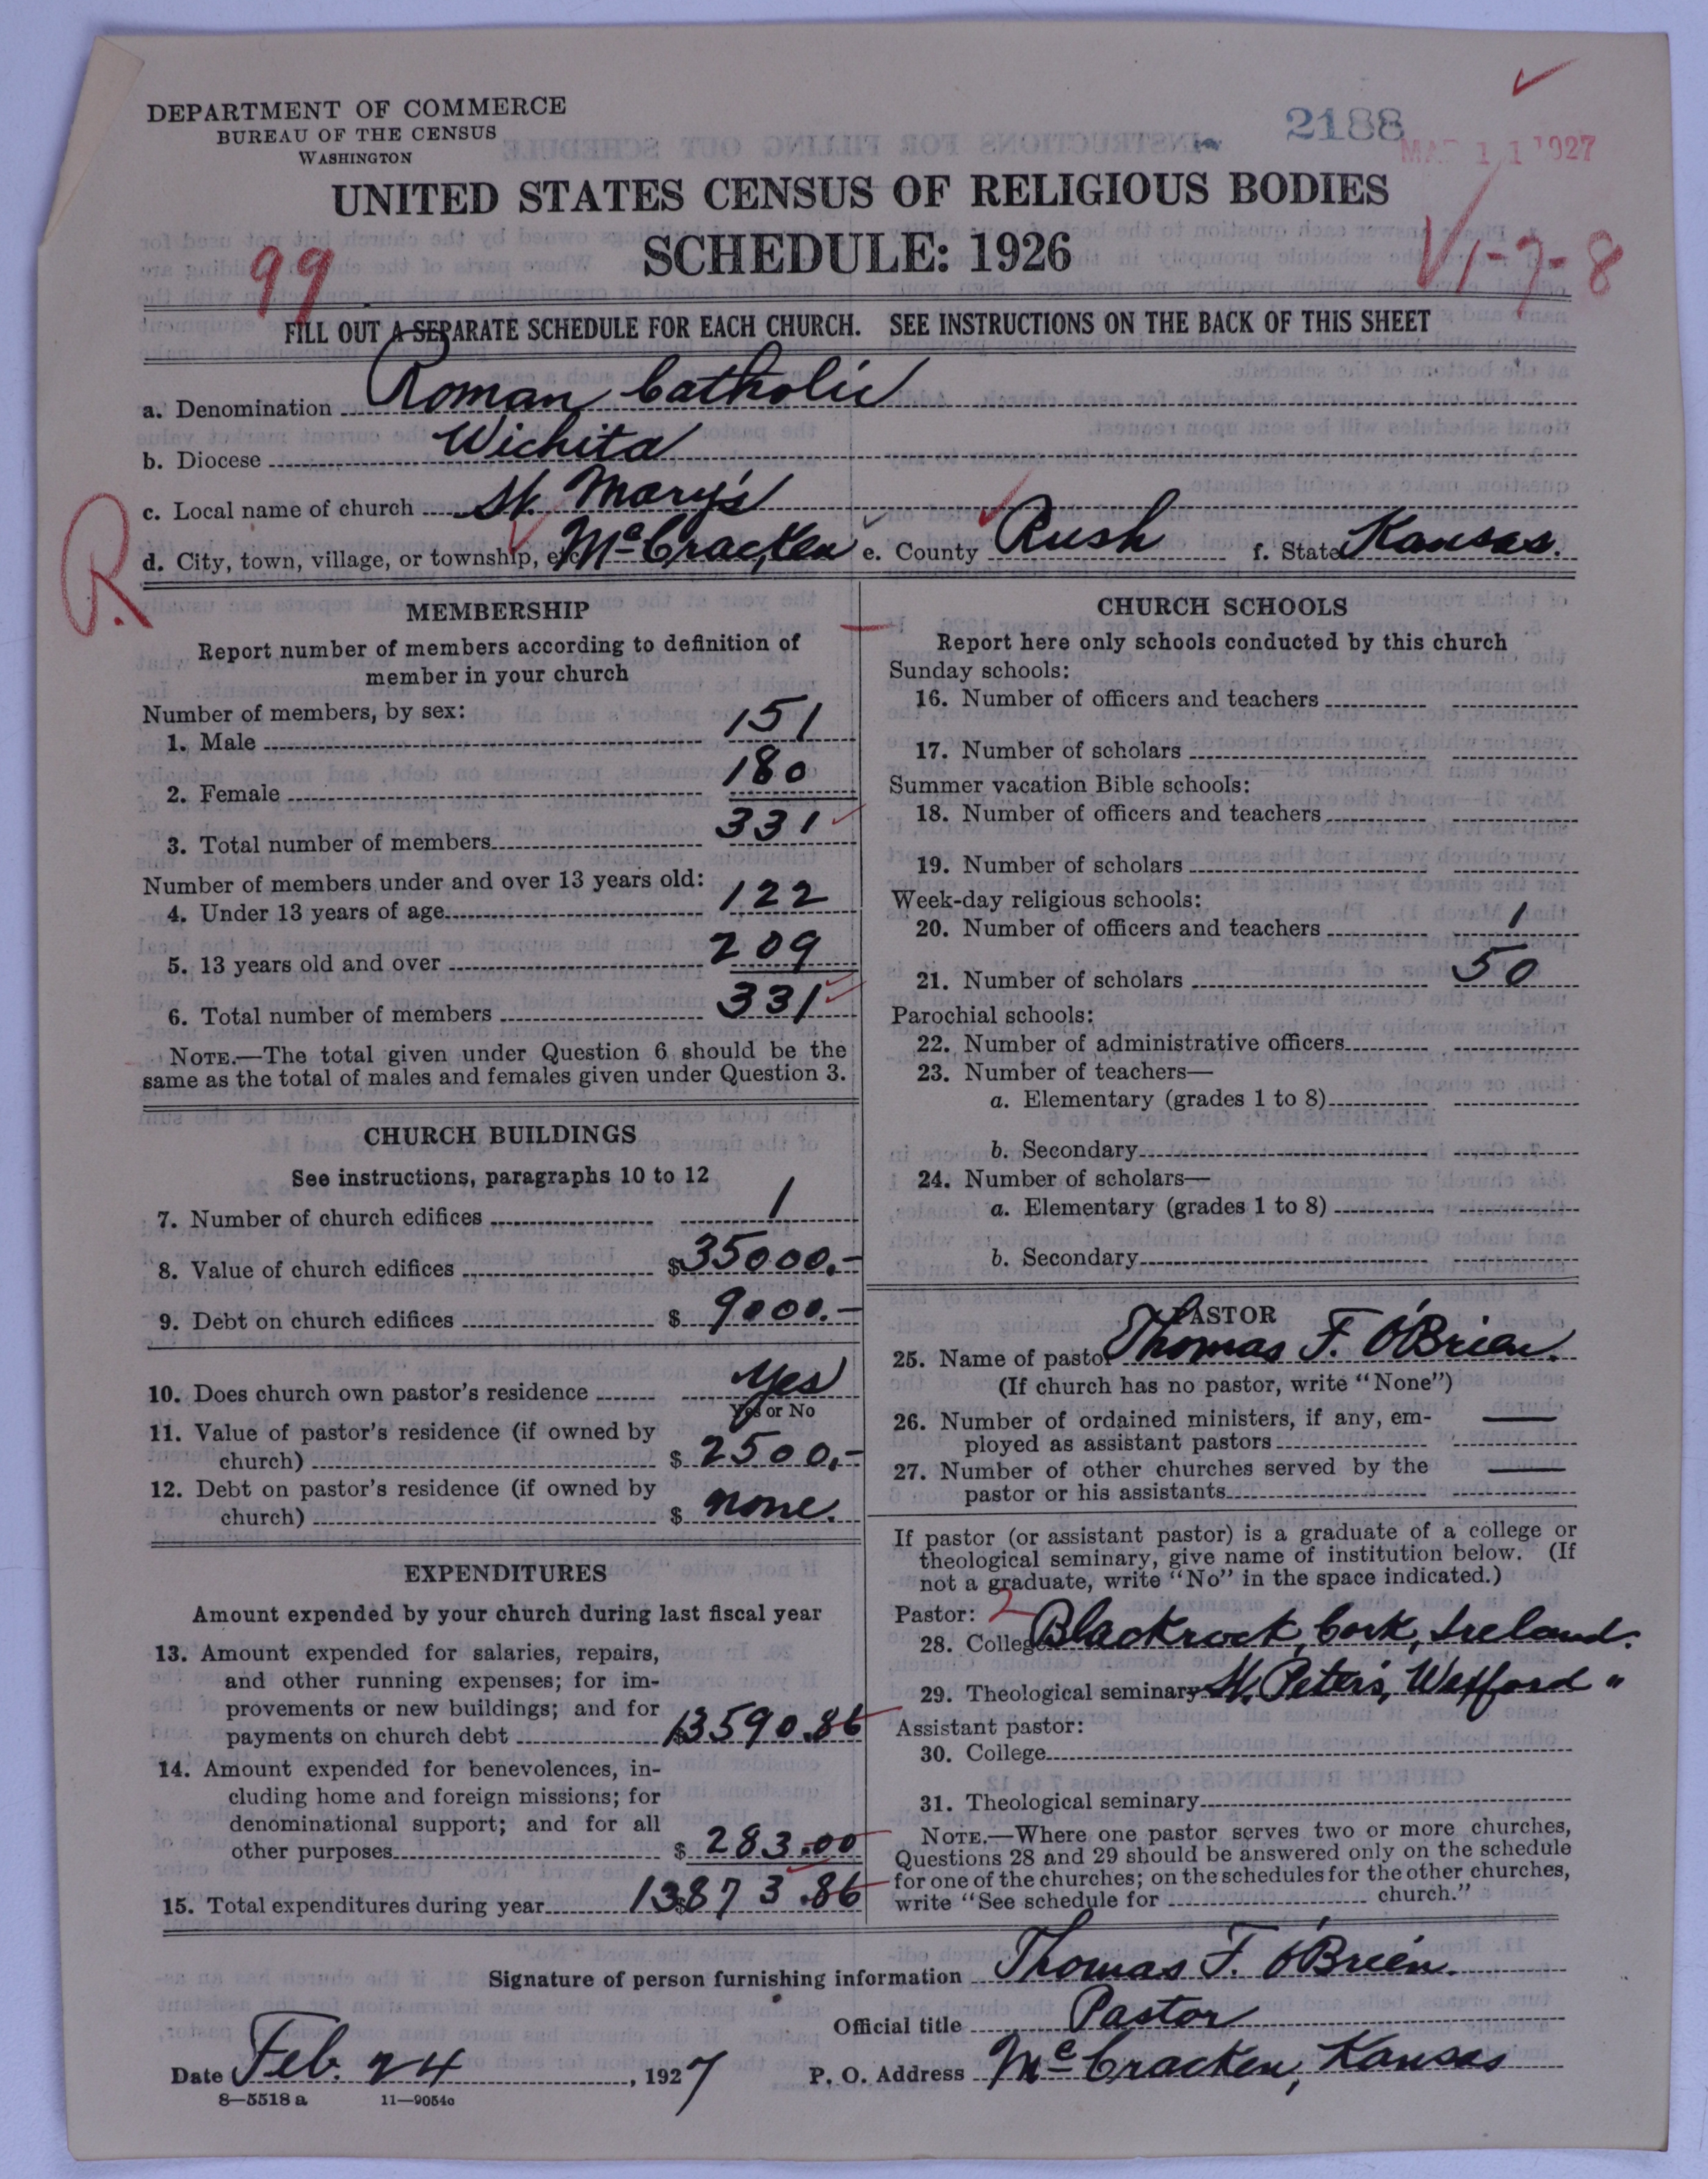 DEPARTMENT OF COMMERCE
BUREAU OF THE CENSUS
WASHINGTON
2188
MAR 11 1927
UNITED STATES CENSUS OF RELIGIOUS BODIES
SCHEDULE: 1926
99
V1-7-8
FILL OUT A SEPARATE SCHEDULE FOR EACH CHURCH. SEE INSTRUCTIONS ON THE BACK OF THIS SHEET
a. Denomination Roman Catholic
b. Diocese Wichita
c. Local name of church St. Mary's
R.
d. City, town, village, or township, etc. McCracken e. County Rush f. State Kansas.
MEMBERSHIP
Report number of members according to definition of
member in your church
Number of members, by sex:
1. Male 151
2. Female 180
3. Total number of members 331
Number of members under and over 13 years old:
4. Under 13 years of age 122
5. 13 years old and over 209
6. Total number of members 331
NOTE.—The total given under Question 6 should be the
same as the total of males and females given under Question 3.
CHURCH BUILDINGS
See instructions, paragraphs 10 to 12
7. Number of church edifices 1
8. Value of church edifices $35000.-
9. Debt on church edifices $9000.-
10. Does church own pastor's residence Yes
Yes or No
11. Value of pastor's residence (if owned by
church) $2500.-
12. Debt on pastor's residence (if owned by
church) $none.
EXPENDITURES
Amount expended by your church during last fiscal year
13. Amount expended for salaries, repairs,
and other running expenses; for im-
provements or new buildings; and for
payments on church debt $13590.86
14. Amount expended for benevolences, in-
cluding home and foreign missions; for
denominational support; and for all
other purposes $283.00
15. Total expenditures during year $13873.86
CHURCH SCHOOLS
Report here only schools conducted by this church
Sunday schools:
16. Number of officers and teachers
17. Number of scholars
Summer vacation Bible schools:
18. Number of officers and teachers
19. Number of scholars
Week-day religious schools:
20. Number of officers and teachers 1
21. Number of scholars 50
Parochial schools:
22. Number of administrative officers
23. Number of teachers—
a. Elementary (grades 1 to 8)
b. Secondary
24. Number of scholars—
a. Elementary (grades 1 to 8)
b. Secondary
PASTOR
25. Name of pastor Thomas F. O'Brien.
(If church has no pastor, write "None")
26. Number of ordained ministers, if any, em-
ployed as assistant pastors —
27. Number of other churches served by the
pastor or his assistants —
If pastor (or assistant pastor) is a graduate of a college or
theological seminary, give name of institution below. (If
not a graduate, write "No" in the space indicated.)
Pastor: 2
28. College Blackrock, Cork, Ireland.
29. Theological seminary St. Peter's, Wexford "
Assistant pastor:
30. College
31. Theological seminary
NOTE.—Where one pastor serves two or more churches,
Questions 28 and 29 should be answered only on the schedule
for one of the churches; on the schedules for the other churches,
write "See schedule for church."
Signature of person furnishing information Thomas F. O'Brien.
Official title Pastor
Date Feb. 24, 1927 P. O. Address McCracken, Kansas
8—5518 a 11—9054a